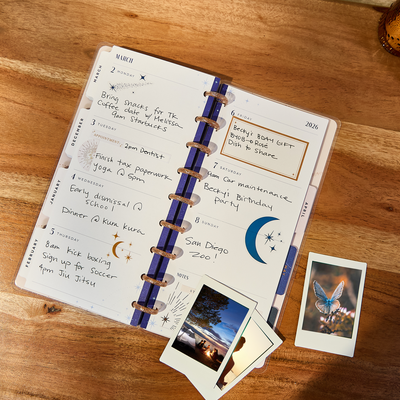 MARCH
2 MONDAY
Bring snacks for TK
Coffee date w/ Melissa
9am Starbucks
3 TUESDAY
Dentist
Finish tax paperwork
yoga @ 5pm
4 WEDNESDAY
Early dismissal @
school
Dinner @ Kura Kura
5 THURSDAY
8am kick boxing
Sign up for soccer
4pm Jiu Jitsu
MARCH
DECEMBER
JANUARY
FEBRUARY
2026
6 FRIDAY
Becky's BDAY GIFT
Dish to share
7 SATURDAY
9am Car maintenance
Becky's Birthday
party
8 SUNDAY
San Diego
Zoo!
NOTES